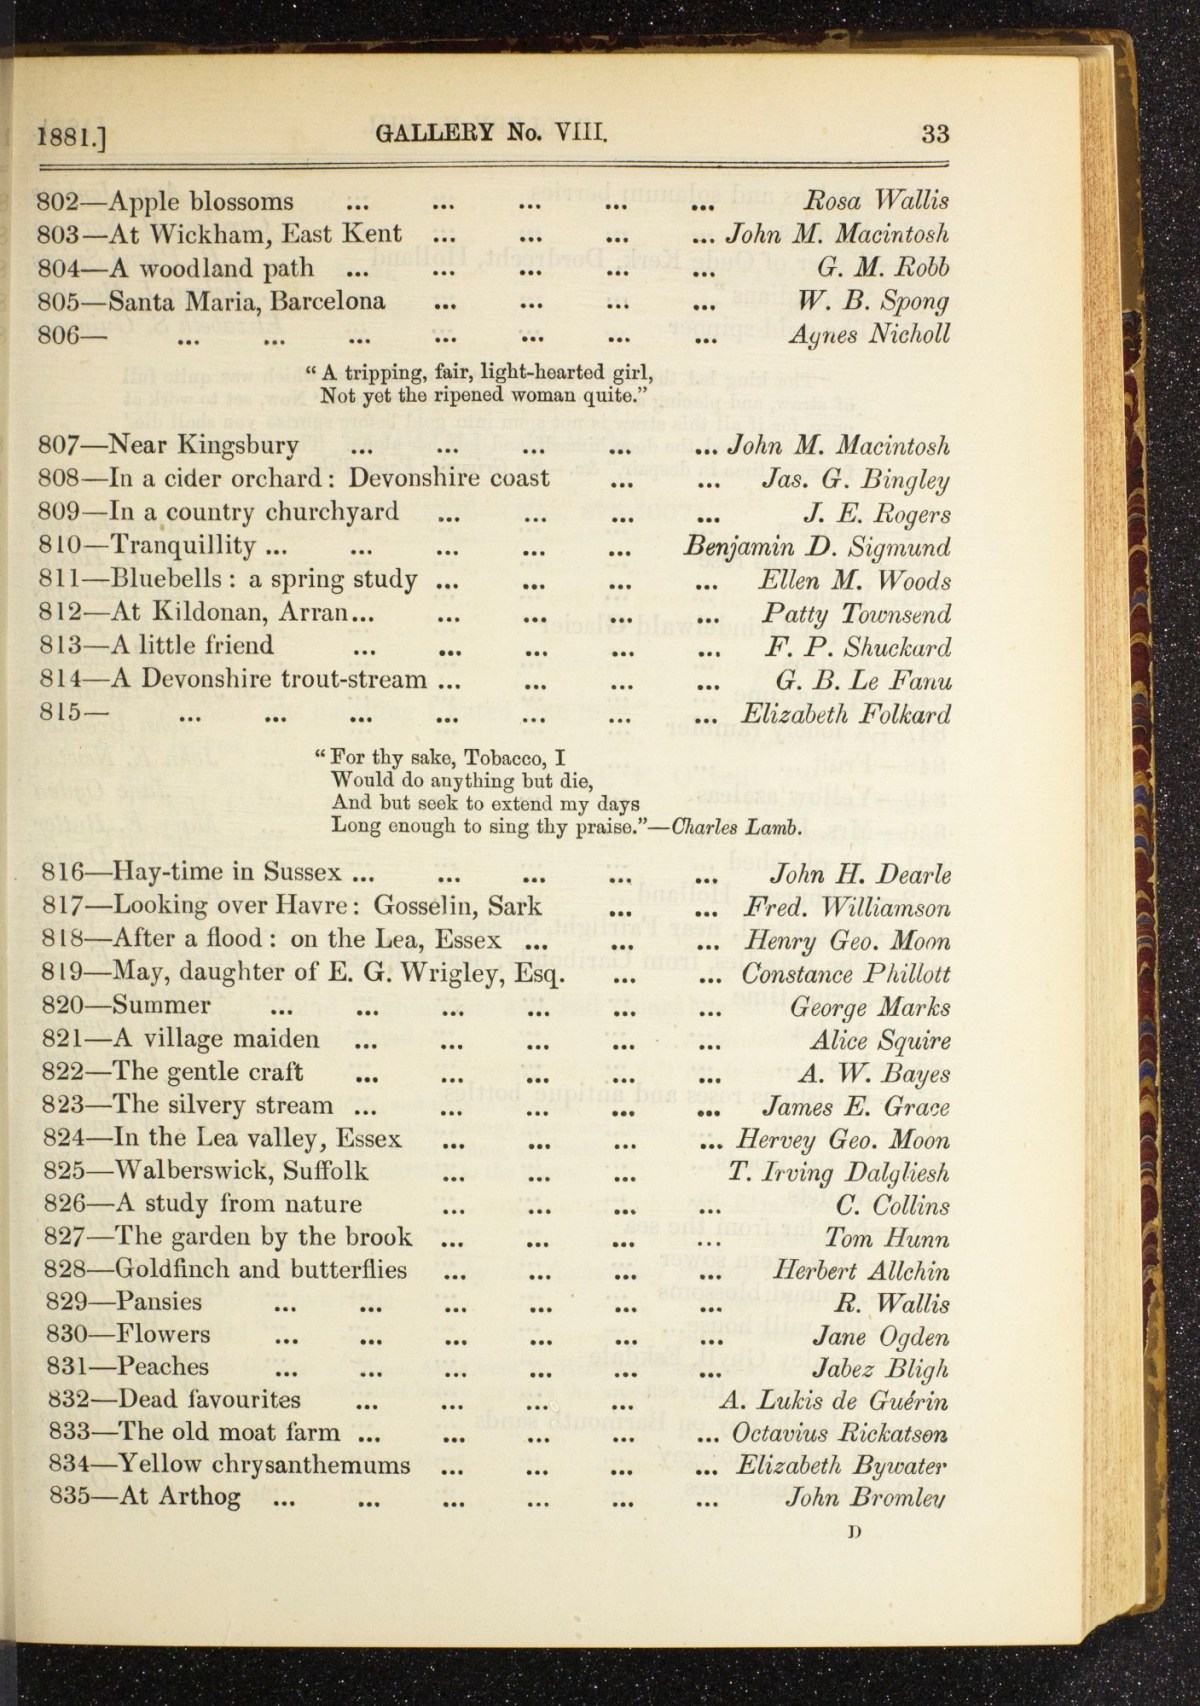 1881.] GALLERY No. VIII. 33
802—Apple blossoms ... ... ... ... ... Rosa Wallis
803—At Wickham, East Kent ... ... ... ... John M. Macintosh
804—A woodland path ... ... ... ... ... G. M. Robb
805—Santa Maria, Barcelona ... ... ... ... W. B. Spong
806— ... ... ... ... ... ... ... Agnes Nicholl
“ A tripping, fair, light-hearted girl,
Not yet the ripened woman quite.”
807—Near Kingsbury ... ... ... ... ... John M. Macintosh
808—In a cider orchard : Devonshire coast ... ... Jas. G. Bingley
809—In a country churchyard ... ... ... ... J. E. Rogers
810—Tranquillity ... ... ... ... ... Benjamin D. Sigmund
811—Bluebells : a spring study ... ... ... ... Ellen M. Woods
812—At Kildonan, Arran... ... ... ... ... Patty Townsend
813—A little friend ... ... ... ... ... F. P. Shuckard
814—A Devonshire trout-stream ... ... ... ... G. B. Le Fanu
815— ... ... ... ... ... ... ... Elizabeth Folkard
“ For thy sake, Tobacco, I
Would do anything but die,
And but seek to extend my days
Long enough to sing thy praise.”—Charles Lamb.
816—Hay-time in Sussex ... ... ... ... ... John H. Dearle
817—Looking over Havre : Gosselin, Sark ... ... Fred. Williamson
818—After a flood : on the Lea, Essex ... ... ... Henry Geo. Moon
819—May, daughter of E. G. Wrigley, Esq. ... ... Constance Phillott
820—Summer ... ... ... ... ... ... George Marks
821—A village maiden ... ... ... ... ... Alice Squire
822—The gentle craft ... ... ... ... ... A. W. Bayes
823—The silvery stream ... ... ... ... ... James E. Grace
824—In the Lea valley, Essex ... ... ... ... Hervey Geo. Moon
825—Walberswick, Suffolk ... ... ... T. Irving Dalgliesh
826—A study from nature ... ... ... ... C. Collins
827—The garden by the brook ... ... ... ... Tom Hunn
828—Goldfinch and butterflies ... ... ... ... Herbert Allchin
829—Pansies ... ... ... ... ... ... R. Wallis
830—Flowers ... ... ... ... ... ... Jane Ogden
831—Peaches ... ... ... ... ... ... Jabez Bligh
832—Dead favourites ... ... ... ... A. Lukis de Guérin
833—The old moat farm ... ... ... ... ... Octavius Rickatson
834—Yellow chrysanthemums ... ... ... ... Elizabeth Bywater
835—At Arthog ... ... ... ... ... ... John Bromley
D